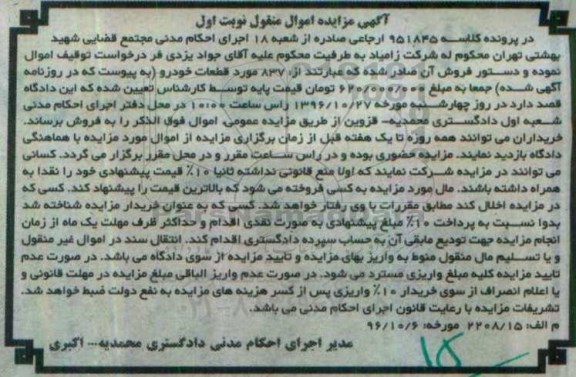 آگهی مزایده اموال منقول نوبت اول
در پرونده کلاسه ۹۵۱۸۴۵ ارجاعی صادره از شعبه ۱۸ اجرای احکام مدنی مجتمع قضایی شهید
بهشتی تهران محکوم له شرکت زامیاد به طرفیت محکوم علیه آقای جواد یزدی فر درخواست توقیف اموال
نموده و دستور فروش آن صادر شده که عبارتند از: ۸۳۷ مورد قطعات خودرو (به پیوست که در روزنامه
آگهی شده) جمعا به مبلغ تومان قیمت پایه توسط کارشناس تعیین شده که این دادگاه
قصد دارد در روز چهارشنبه مورخه ۱۳۹۶/۱۰/۲۷ راس ساعت ۱۰:۰۰ در محل دفتر اجرای احکام مدنی
شعبه اول دادگستری محمدیه- قزوین از طریق مزایده عمومی اموال فوق الذکر را به فروش برساند.
خریداران می توانند همه روزه تا یک هفته قبل از زمان برگزاری مزایده از اموال مورد مزایده با هماهنگی
دادگاه بازدید نمایند. مزایده حضوری بوده و در راس ساعت مقرر و در محل مقرر برگزار می گردد. کسانی
می توانند در مزایده شرکت نمایند که اولا منع قانونی نداشته ثانیا ۱۰٪ قیمت پیشنهادی خود را نقدا به
همراه داشته باشند. مال مورد مزایده به کسی فروخته می شود که بالاترین قیمت را پیشنهاد کند. کسی که
در مزایده اخلال کند مطابق مقررات با وی رفتار خواهد شد. کسی که به عنوان خریدار مزایده شناخته شد
بدوا نسبت به پرداخت ۱۰٪ مبلغ پیشنهادی به صورت نقدی اقدام و حداکثر ظرف مهلت یک ماه از زمان
انجام مزایده جهت تودیع مابقی آن به حساب سپرده دادگستری اقدام کند. انتقال سند در اموال غیر منقول
و یا تسلیم مال منقول منوط به واریز بهای مزایده و تایید مزایده از سوی دادگاه می باشد. در صورت عدم
تایید مزایده کلیه مبلغ واریزی مسترد می شود. در صورت عدم واریز الباقی مبلغ مزایده در مهلت قانونی و
یا اعلام انصراف از سوی خریدار ۱۰٪ واریزی پس از کسر هزینه های مزایده به نفع دولت ضبط خواهد شد.
تشریفات مزایده با رعایت قانون اجرای احکام مدنی می باشد.
م الف: ۲۲۰۸/۱۵ مورخه: ۹۶/۱۰/۶
مدیر اجرای احکام مدنی دادگستری محمدیه-- اکبری